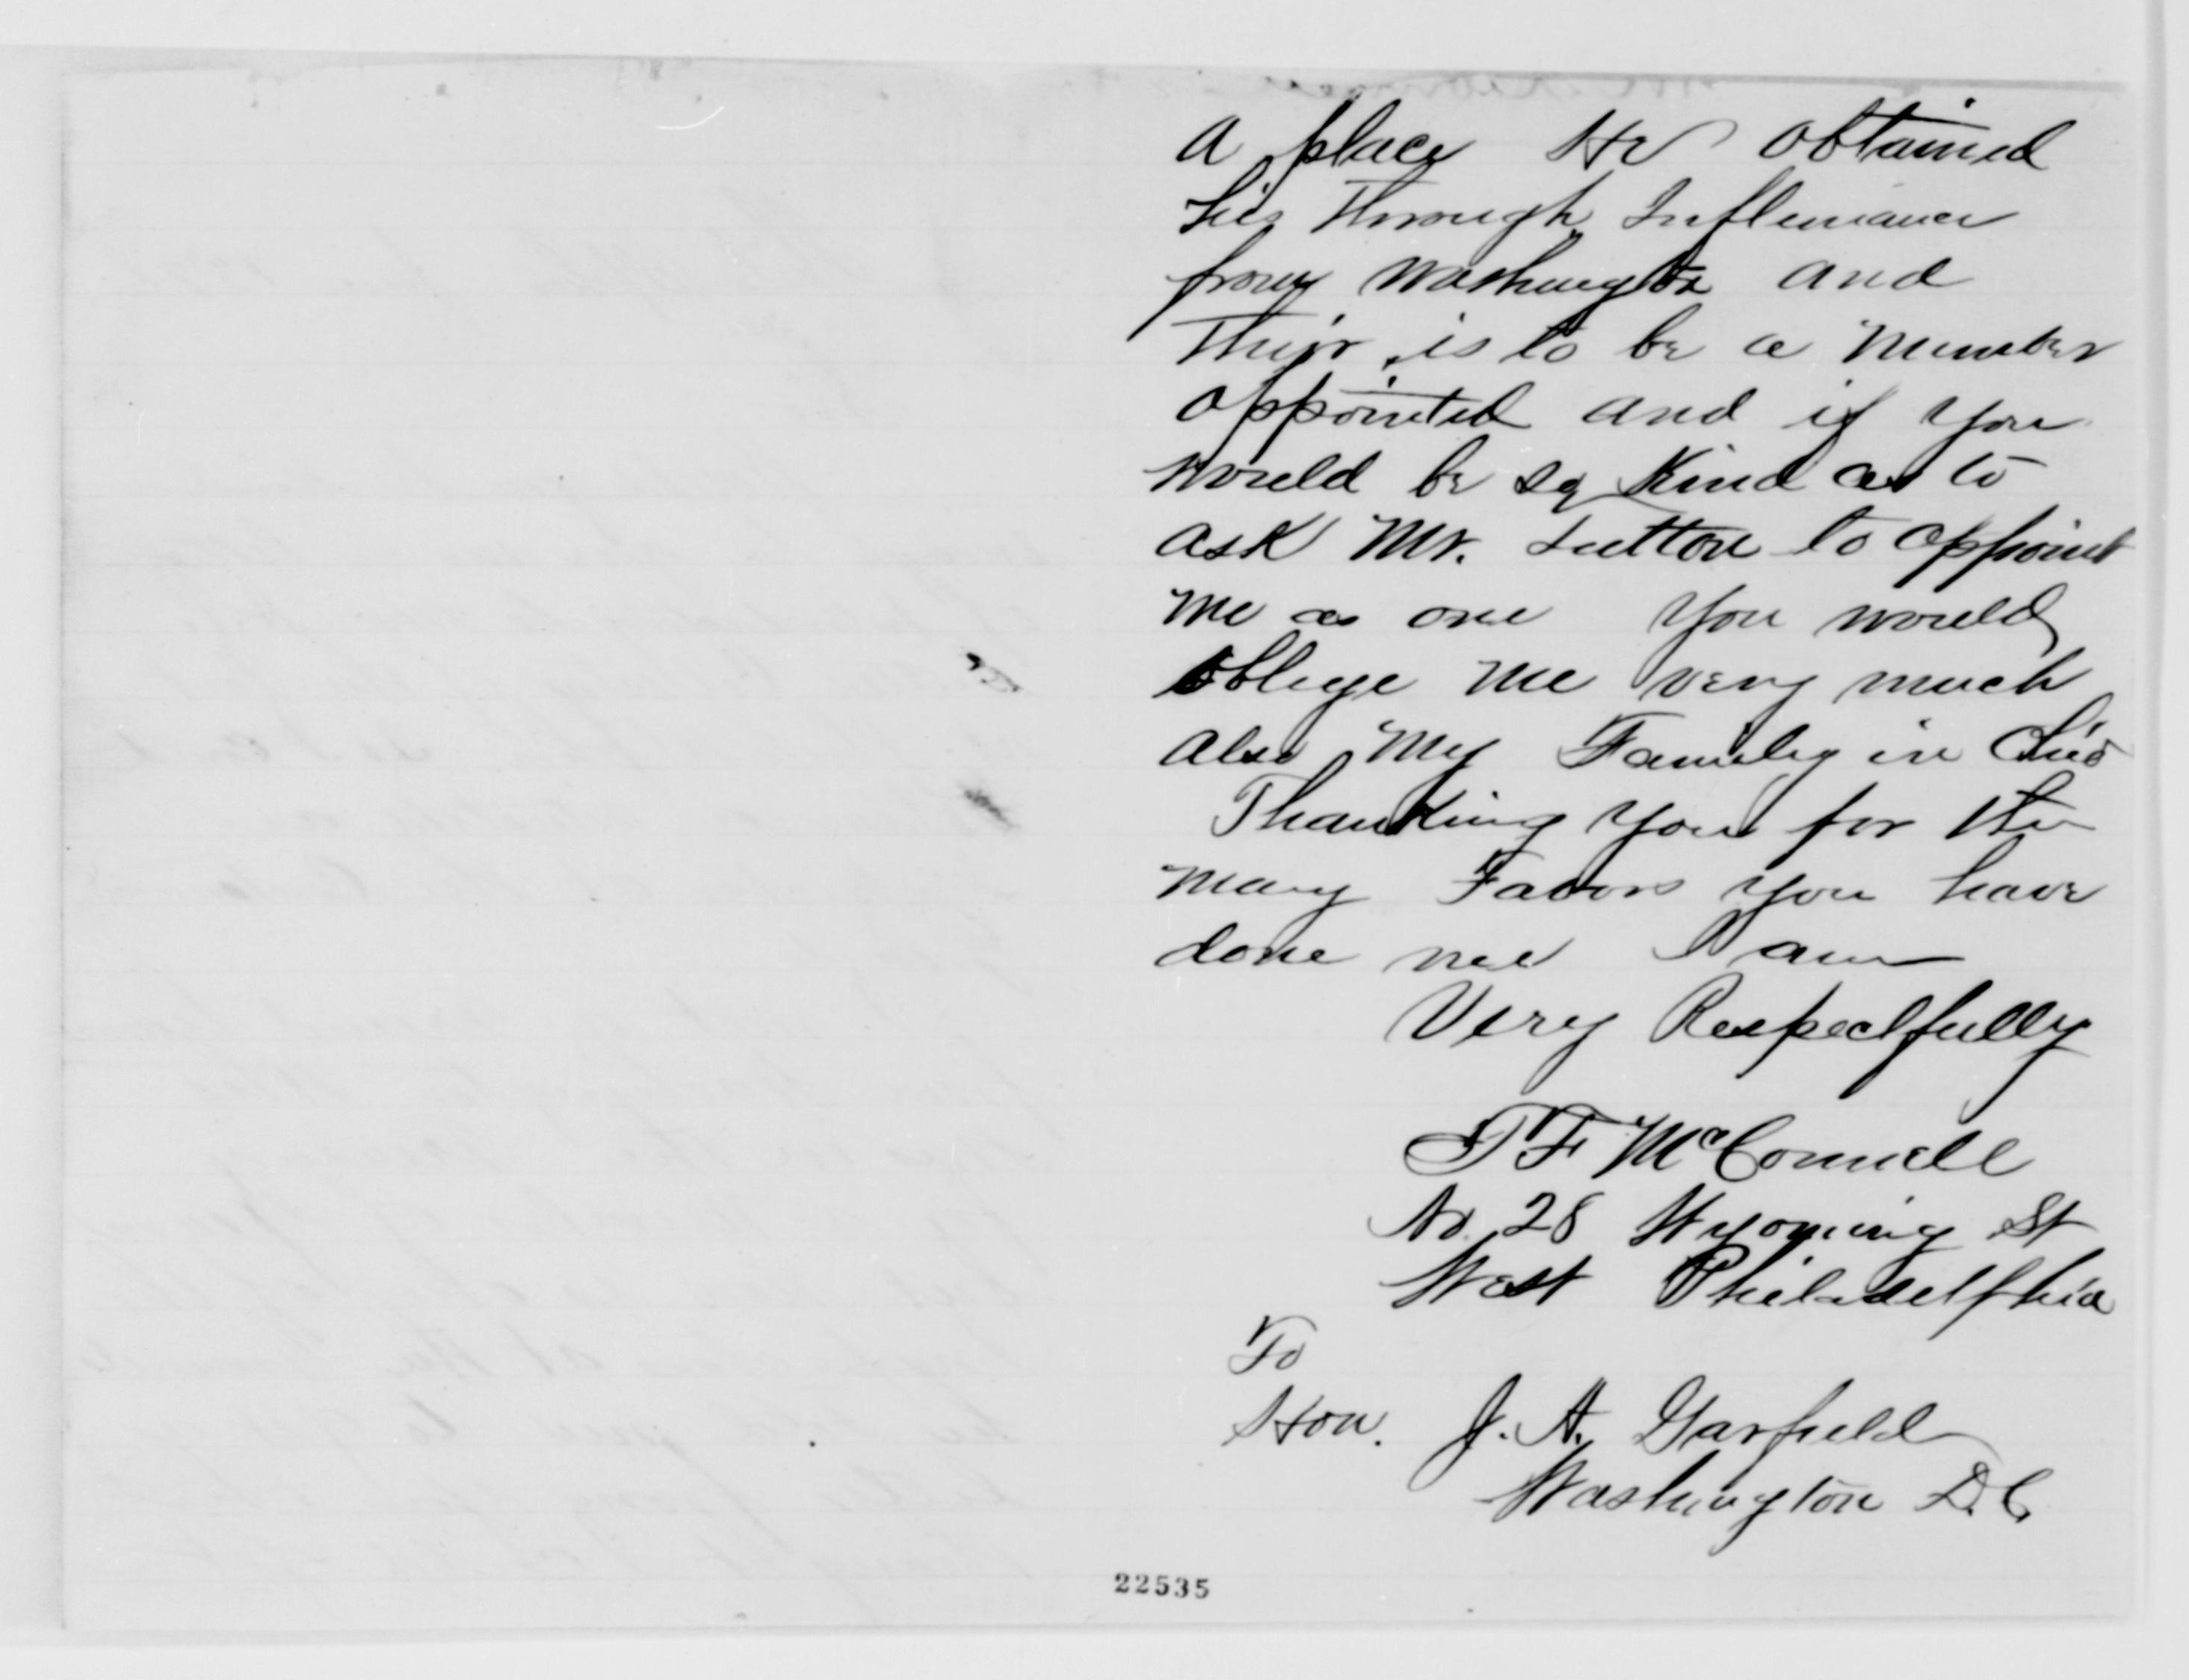 a place He obtained
his through Influenance
from Washington and
Their is to be a Number
appointed and if you
would be so Kind as to
ask Mr. Sutton to appoint
me as one You would
oblige me very much
also My Family in Ohio
Thanking You for the
many Favors you have
done me I am
Very Respectfully
T F McConnell
No. 28 Wyoming St
West Philadelphia
To
Hon. J. A. Garfield
Washington D.C.
22535